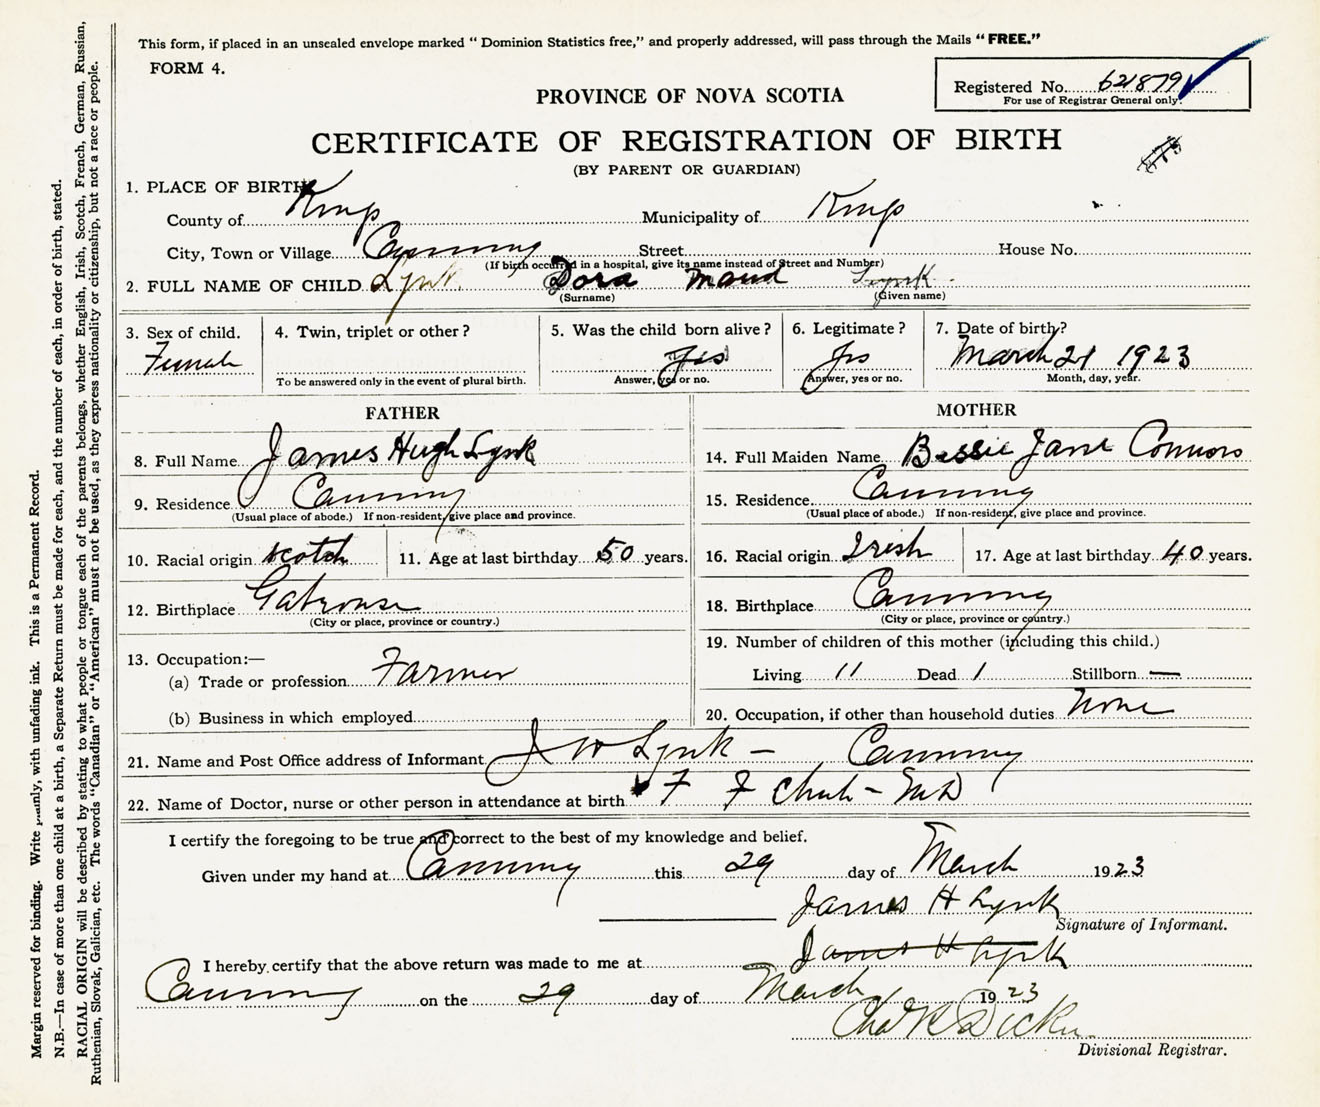 This form, if placed in an unsealed envelope marked “ Dominion Statistics free,” and properly addressed, will pass through the Mails “ FREE.”
FORM 4.
Registered No. 621879
For use of Registrar General only.
PROVINCE OF NOVA SCOTIA
CERTIFICATE OF REGISTRATION OF BIRTH
(BY PARENT OR GUARDIAN)
1. PLACE OF BIRTH
County of Kings Municipality of Kings
City, Town or Village Canning Street House No.
(If birth occurred in a hospital, give its name instead of Street and Number)
2. FULL NAME OF CHILD Lynk Dora Maud Lynk
(Surname) (Given name)
3. Sex of child. 4. Twin, triplet or other? 5. Was the child born alive? 6. Legitimate? 7. Date of birth?
Female Yes Yes March 21 1923
To be answered only in the event of plural birth. Answer, yes or no. Answer, yes or no. Month, day, year.
FATHER MOTHER
8. Full Name James Hugh Lynk 14. Full Maiden Name Bessie Jane Connors
9. Residence Canning 15. Residence Canning
(Usual place of abode.) If non-resident, give place and province. (Usual place of abode.) If non-resident, give place and province.
10. Racial origin Scotch 11. Age at last birthday 50 years. 16. Racial origin Irish 17. Age at last birthday 40 years.
12. Birthplace 18. Birthplace Canning
(City or place, province or country.) (City or place, province or country.)
13. Occupation:— 19. Number of children of this mother (including this child.)
(a) Trade or profession Farmer Living 11 Dead 1 Stillborn —
(b) Business in which employed 20. Occupation, if other than household duties None
21. Name and Post Office address of Informant J H Lynk – Canning
22. Name of Doctor, nurse or other person in attendance at birth F F – MD
I certify the foregoing to be true and correct to the best of my knowledge and belief.
Given under my hand at Canning this 29 day of March 1923
James H Lynk
Signature of Informant.
James H Lynk
I hereby certify that the above return was made to me at
Canning on the 29 day of March 1923
Divisional Registrar.
Margin reserved for binding. Write plainly, with unfading ink. This is a Permanent Record.
N.B.—In case of more than one child at a birth, a Separate Return must be made for each, and the number of each, in order of birth, stated.
RACIAL ORIGIN will be described by stating to what people or tongue each of the parents belongs, whether English, Irish, Scotch, French, German, Russian,
Ruthenian, Slovak, Galician, etc. The words “Canadian” or “American” must not be used, as they express nationality or citizenship, but not a race or people.